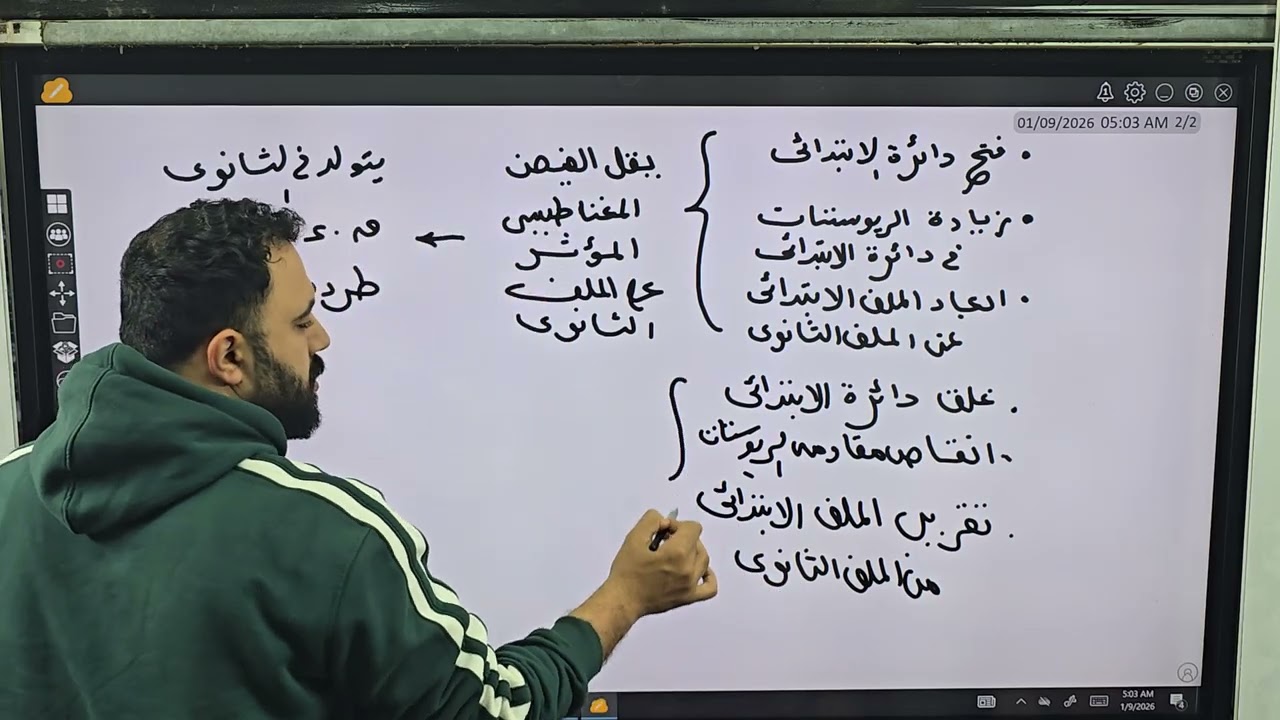 01/09/2026 05:03 AM 2/2
• فتح دائرة الابتدائى
• زيادة الريوستات
فى دائرة الابتدائى
• ابعاد الملف الابتدائى
عن الملف الثانوى
يقل الفيض
المغناطيسى
المؤثر
على الملف
الثانوى
يتولد فى الثانوى
ق . ء
طرد
. غلق دائرة الابتدائى
. انقاص مقاومه الريوستات
. تقريب الملف الابتدائى
من الملف الثانوى
5:03 AM
1/9/2026
4